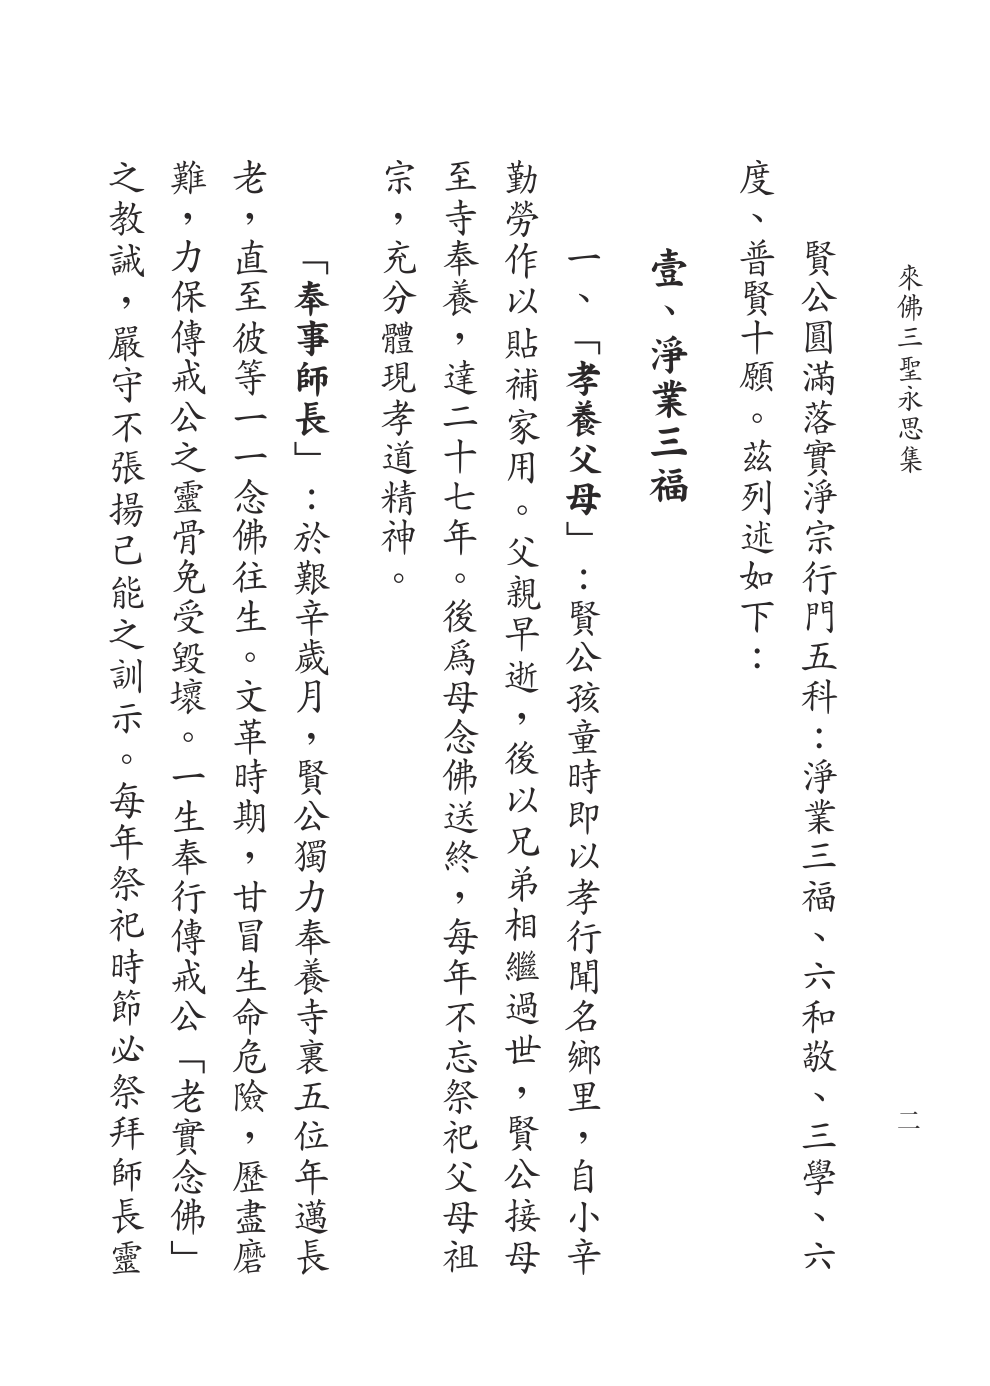 來佛三聖永思集
二
賢公圓滿落實淨宗行門五科：淨業三福、六和敬、三學、六
度、普賢十願。茲列述如下：
壹、淨業三福
一、「孝養父母」：賢公孩童時即以孝行聞名鄉里，自小辛
勤勞作以貼補家用。父親早逝，後以兄弟相繼過世，賢公接母
至寺奉養，達二十七年。後爲母念佛送終，每年不忘祭祀父母祖
宗，充分體現孝道精神。
「奉事師長」：於艱辛歲月，賢公獨力奉養寺裏五位年邁長
老，直至彼等一一念佛往生。文革時期，甘冒生命危險，歷盡磨
難，力保傳戒公之靈骨免受毀壞。一生奉行傳戒公「老實念佛」
之教誡，嚴守不張揚己能之訓示。每年祭祀時節必祭拜師長靈